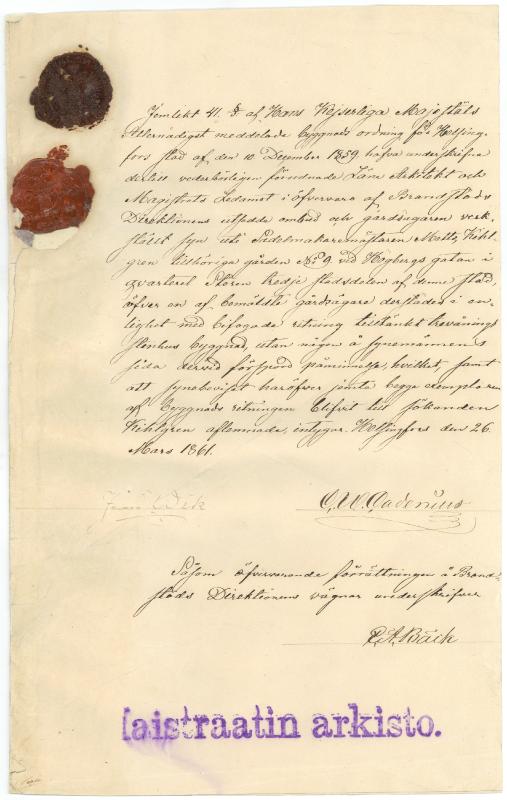 Jemlikt 41. § af Hans Kejserliga Majestäts
Allernådigst meddelade byggnads ordning för Helsing-
fors stad af den 10 December 1859 hafva underskrifne
dertill vederbörligen förordnade Läne Arkitekt och
Magistrats Ledamot i öfvervaro af Brandstods
Direktionens utsedde ombud och gårdsegaren verk-
ställt syn uti Sadelmakaremästaren Matts Kihl-
gren tillhöriga gården No 9 vid Högbergs gatan i
qvarteret Stören tredje stadsdelen af denne stad,
öfver en af bemälte gårdsägare derstädes i en-
lighet med bifogade ritning tilltänkt trevånings
stenhus byggnad, utan någon å synemännens
sida dervid försport påminnelse, hvilket, samt
att synebeviset häröfver jemte begge exemplaren
af byggnads ritningen blifvit till sökanden
Kihlgren aflemnade, intygar. Helsingfors den 26
Mars 1861.
C. W. Cadenius
Såsom öfvervarande förrättningen å Brand-
stods Direktionens vägnar underskrifver
C. A. Bäck
aistraatin arkisto.